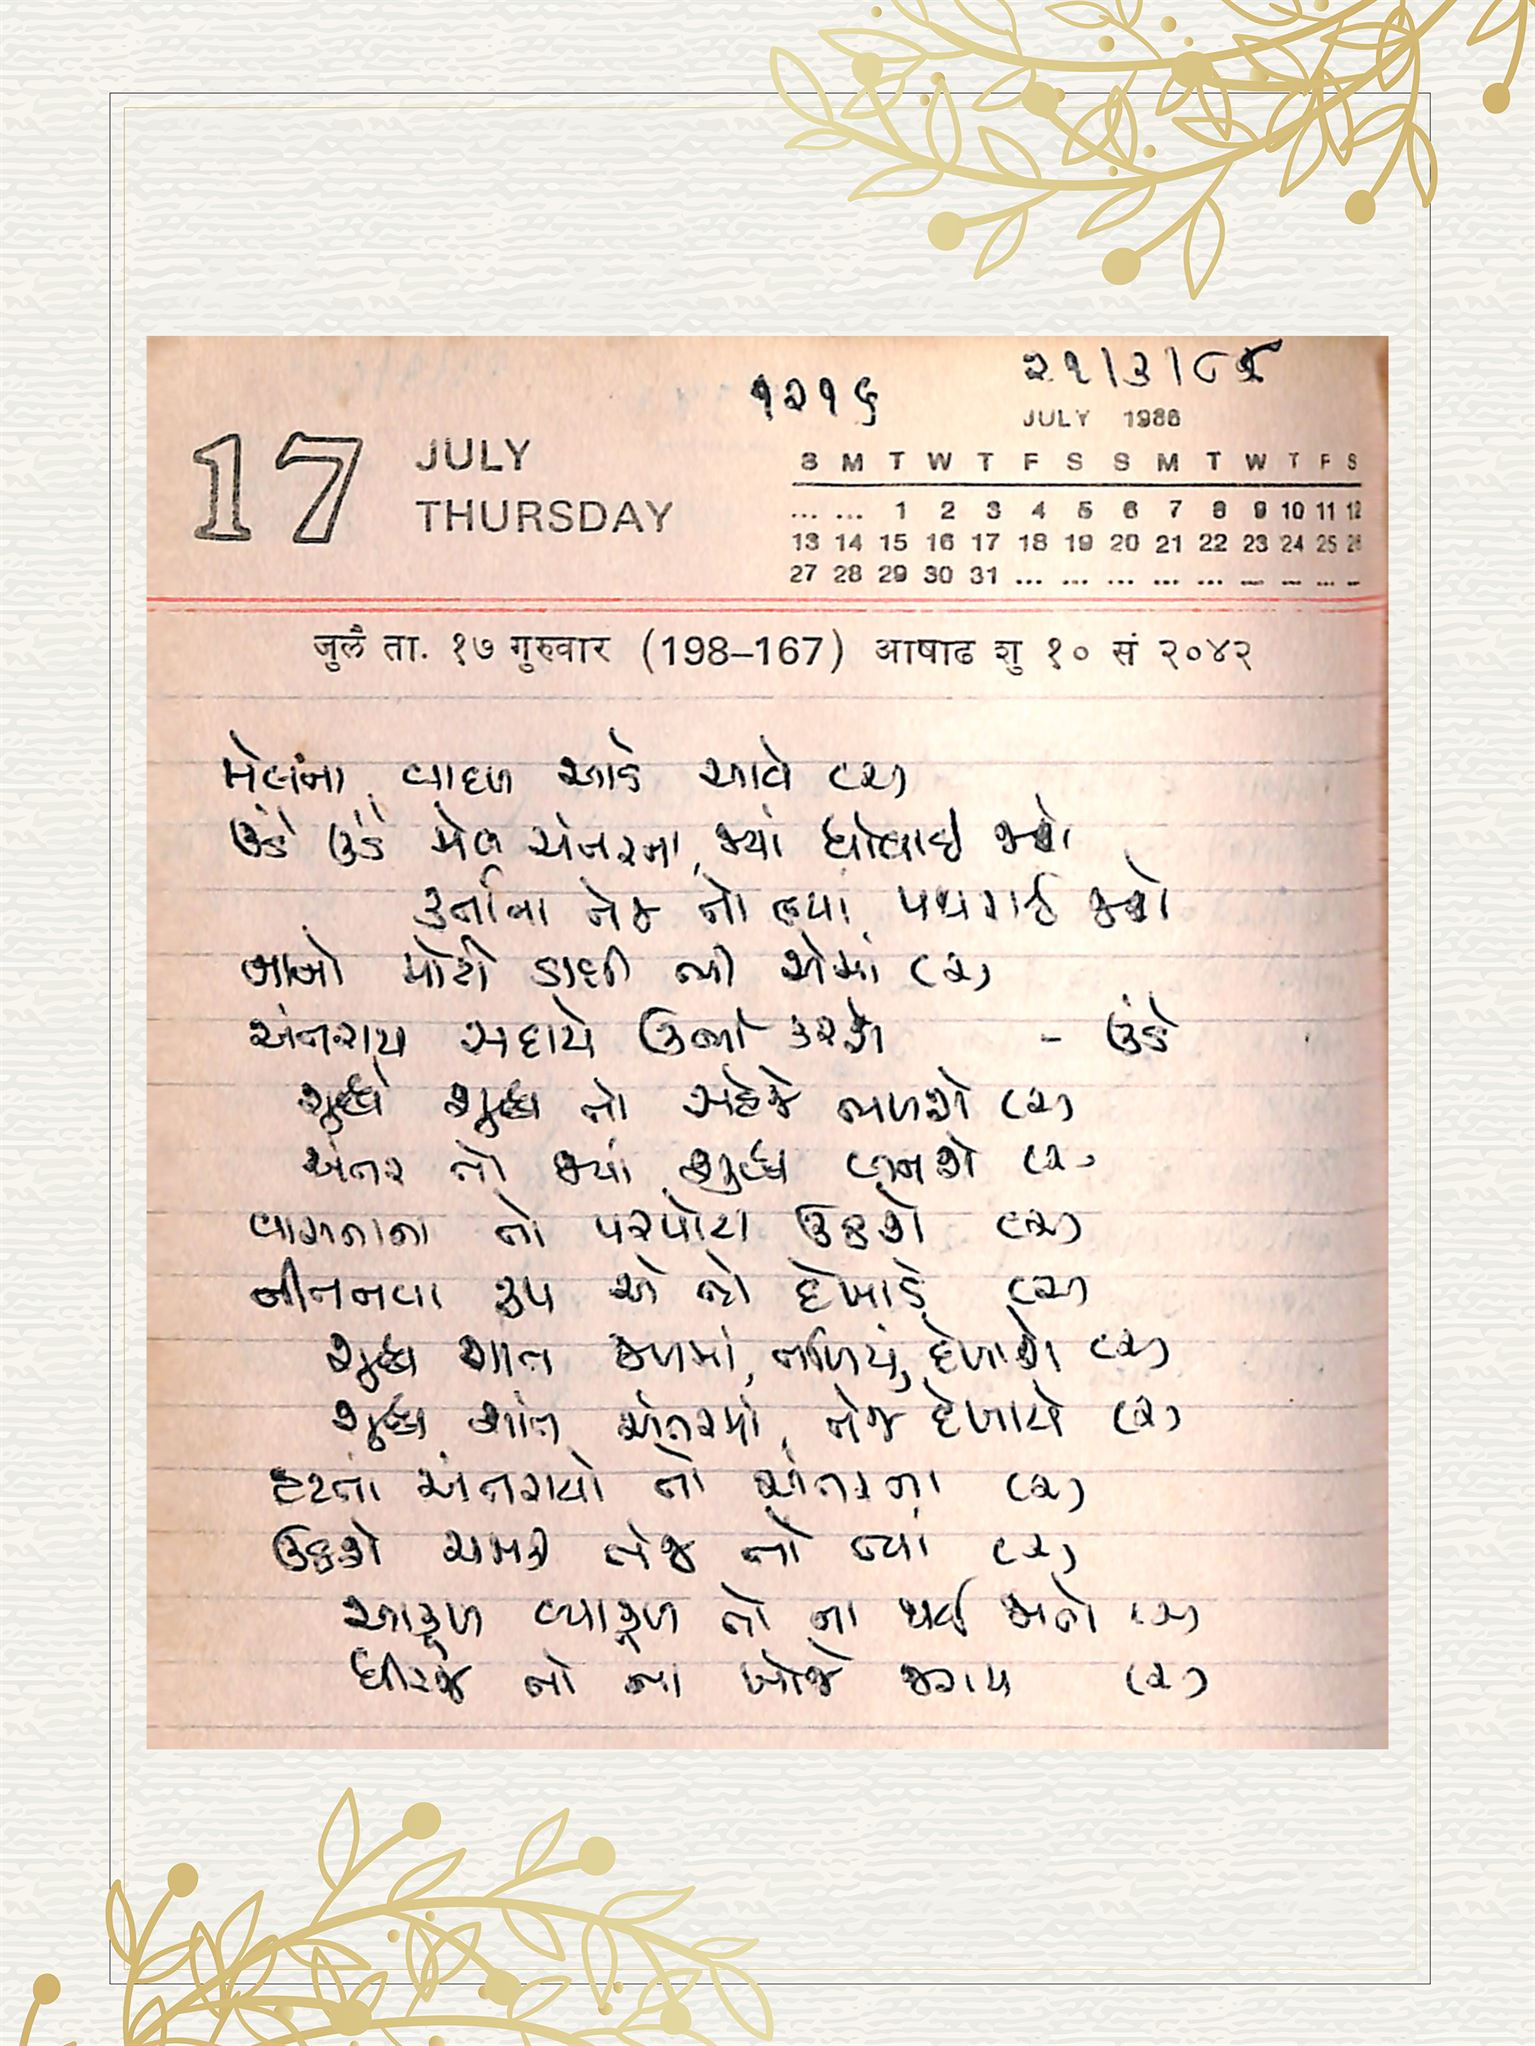 ૧૨૧૬ ૨૧/૩/૮૬
JULY 1986
17 JULY
THURSDAY
S M T W T F S S M T W T F S
... ... 1 2 3 4 5 6 7 8 9 10 11 12
13 14 15 16 17 18 19 20 21 22 23 24 25 26
27 28 29 30 31 ... ... ... ... ... ... ... ... ...
जुलै ता. १७ गुरुवार (198–167) आषाढ शु १० सं २०४२
મેલના વાદળ આડે આવે (૨)
ઉંડે ઉંડે મેલ અંતરના, જ્યાં ધોવાઈ જાશે
કર્તાના તેજ તો ત્યાં પથરાઈ જાશે
નાની મોટી ડાઘી બી એમાં (૨)
અંતરાય સદાયે ઉભો કરશે - ઉંડે
શુધ્ધે શુધ્ધ તો સહેજે ભળશે (૨)
અંતર તો જ્યાં શુધ્ધ બનશે (૨)
વાસનાના તો પરપોટા ઉઠશે (૨)
નીતનવા રૂપ એ તો દેખાડે (૨)
શુધ્ધ શાંત જળમાં, તળિયું દેખાશે (૨)
શુધ્ધ શાંત અંતરમાં, તેજ દેખાયે (૨)
હટતાં અંતરાયો તો અંતરના (૨)
ઉઠશે ચમકી તેજ તો ત્યાં (૨)
આકુળ વ્યાકુળ તો ના થઈ જાતો (૨)
ધીરજ તો ના ખોજે જરાય (૨)